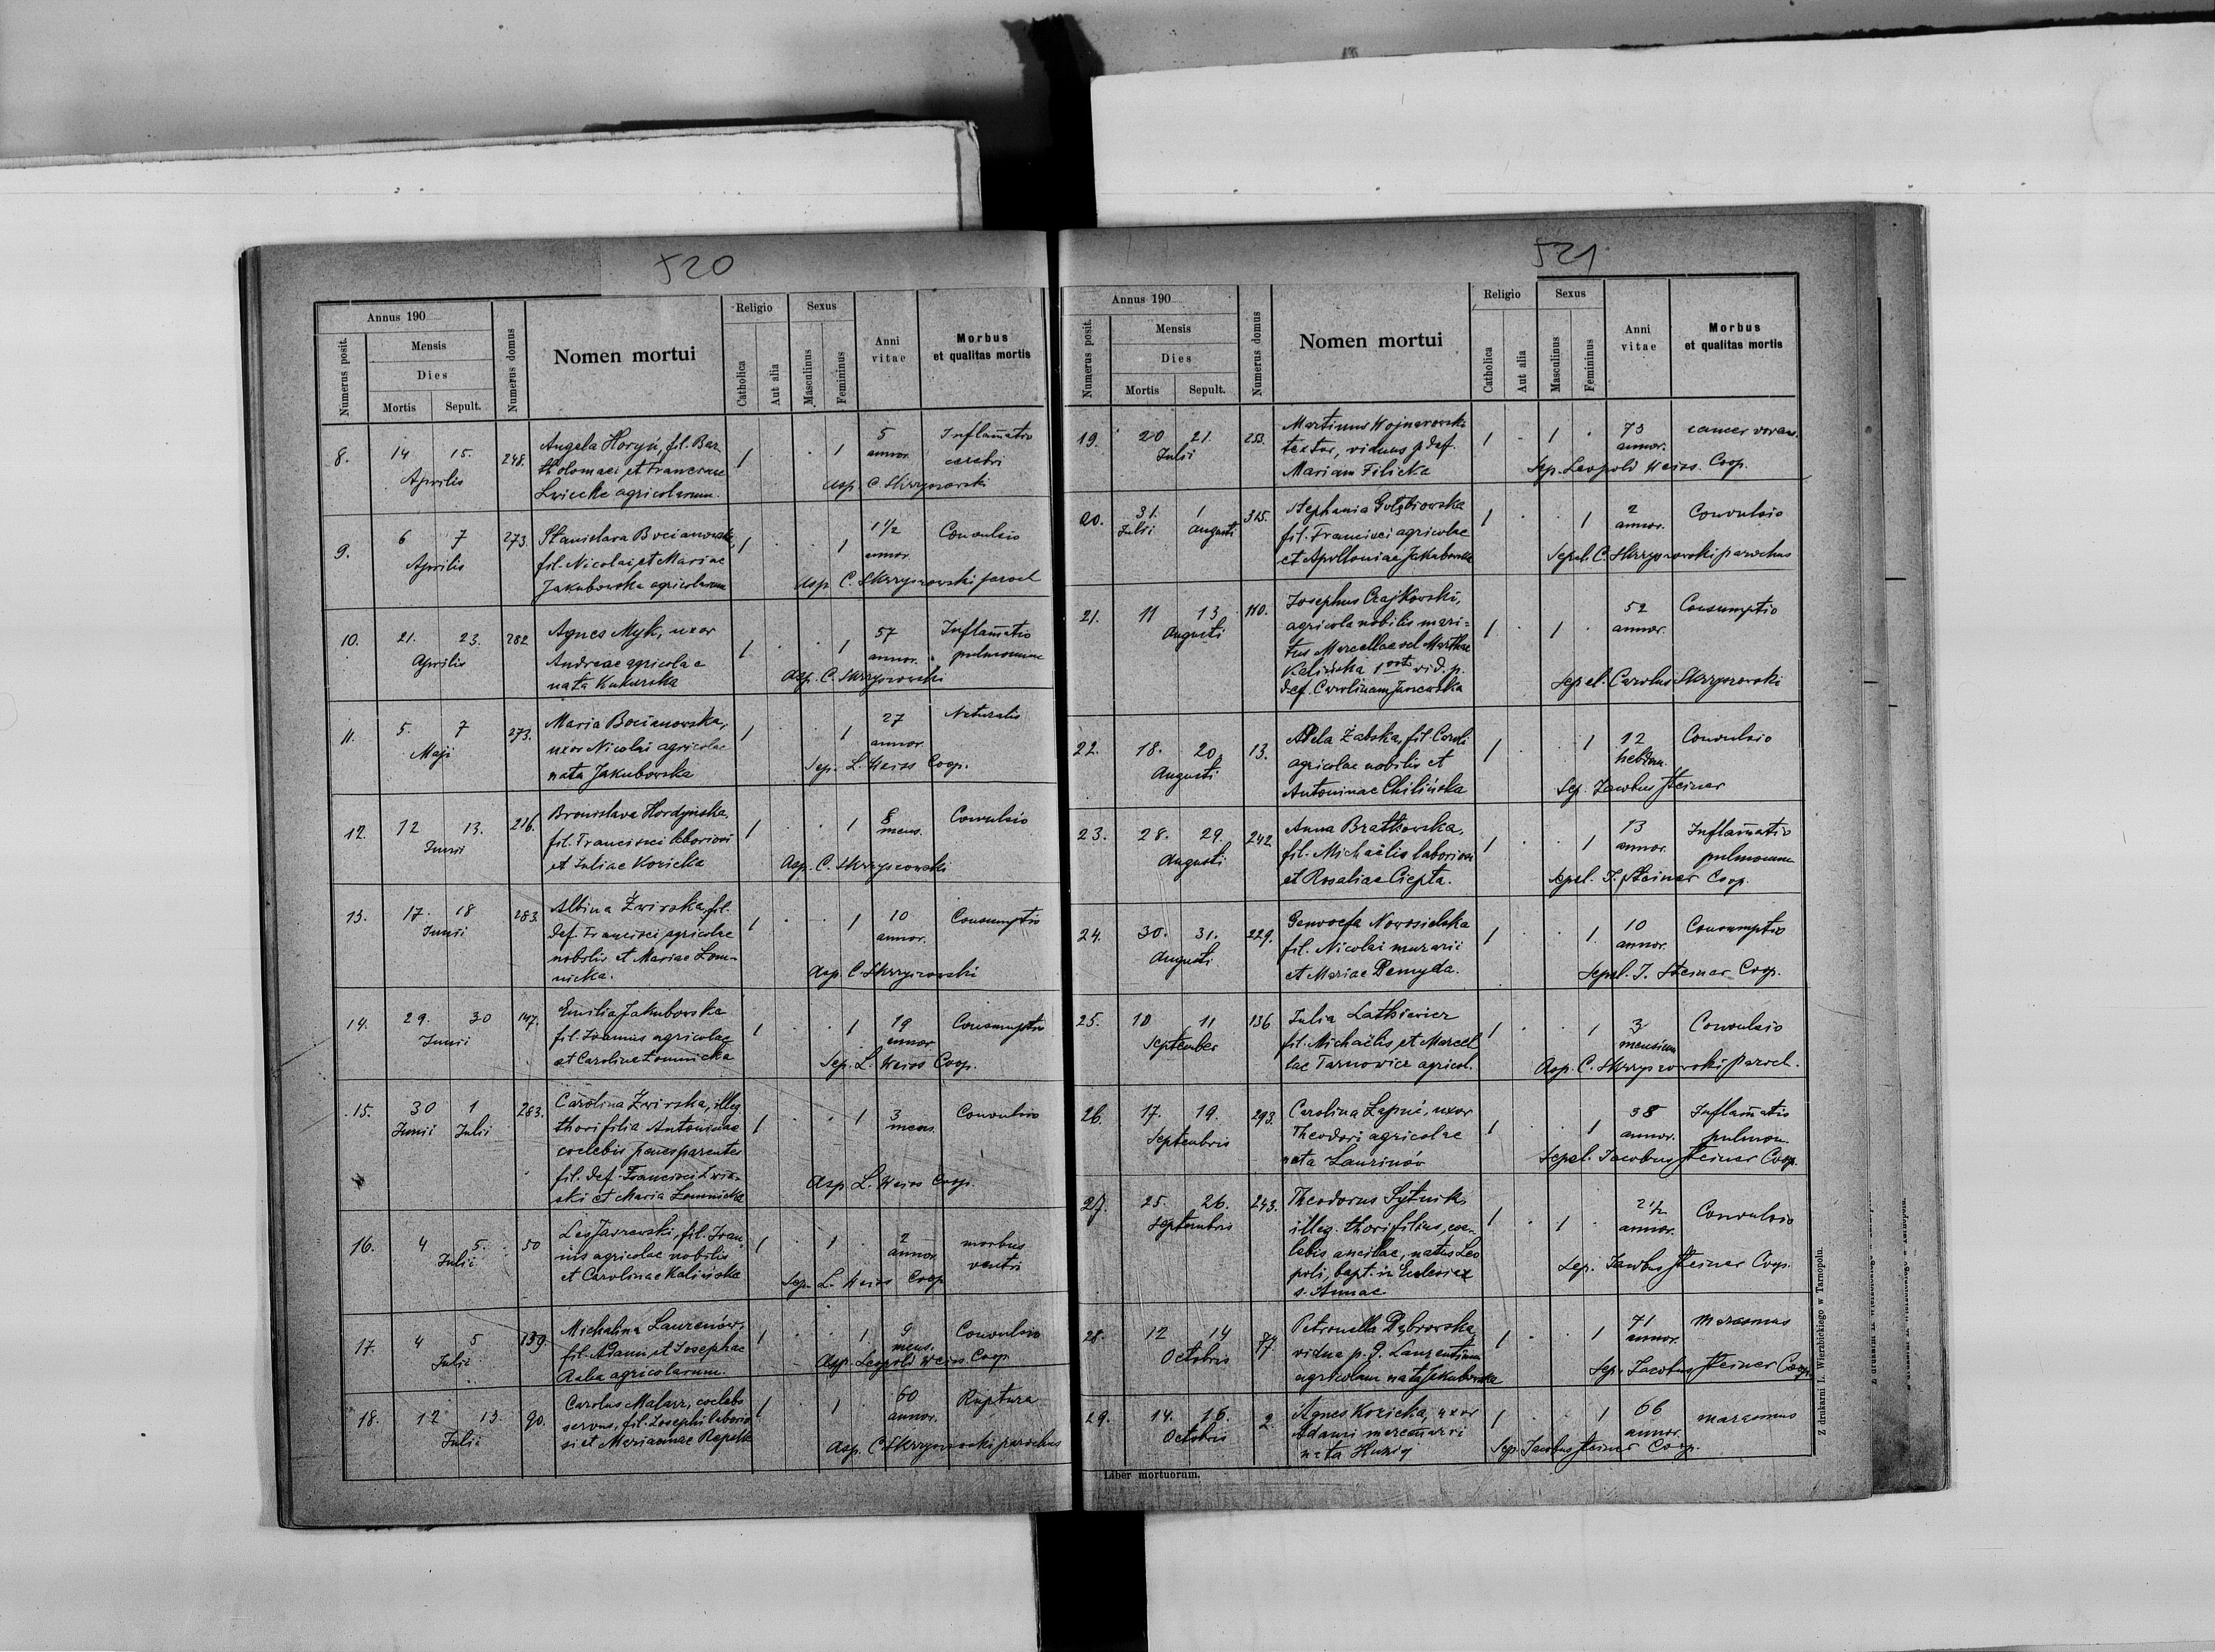 520
Annus 190
Numerus posit.
Mensis
Dies
Mortis
Sepult.
Numerus domus
Nomen mortui
Religio
Catholica
Aut alia
Sexus
Masculinus
Femininus
Anni vitae
Morbus et qualitas mortis
8. 14 15. Aprilis 248. 1 . 1 5 annor. Inflam̄atio cerebri
Angela Horyń, fil. Bar
tholomaei et Franciscae
agricolarum.
Asp. C. Skrzyszowski
9. 6 7 Aprilis 273. 1 . . 1 1 1/2 annor. Convulsio
Stanislava Bocianowska,
fil. Nicolai et Mariae
Jakubowska agricolarum
Asp. C. Skrzyszowski paroch
10. 21. 23. Aprilis 282 1 . . 1 57 annor. Inflam̄atio pulmonum
Agnes Myk, uxor
Andreae agricolae
nata Kukurska
Asp. C. Skrzyszowski
11. 5. 7 Maji 273. 1 . . 1 27 annor. Naturalis
Maria Bocianowska,
uxor Nicolai agricolae
nata Jakubowska
Sep. L. Weiss Coop.
12. 12 13. Junii 216. 1 . . 1 8 mens. Convulsio
Bronislava Hordyńska,
fil. Francisci laboriosi
et Juliae Kozicka
Asp. C. Skrzyszowski
13. 17. 18 Junii 283. 1 . . 1 10 annor. Consumptio
Albina Żwirska, fil.
def. Francisci agricolae
nobilis et Mariae Łom-
nicka.
Asp. C. Skrzyszowski
14. 29. 30 Junii 147. 1 . . 1 19 annor Consumptio
Emilia Jakubowska
fil. Joannis agricolae
et Carolina Łomnicka
Sep. L. Weiss Coop.
15. 30 Junii 1 Julii 283. 1 . . 1 3 mens. Convulsio
Carolina Żwirska, illeg.
thori filia Antoninae
coelebis penes parentes
fil. def. Francisci Żwir-
ski et Maria Łomnicka
Asp. L. Weiss Coop.
16. 4 5. Julii 50 1 . 1 . 2 annor. morbus ventri
Leo Jaxewski, fil. Joan
nis agricolae nobilis
et Carolinae Kalińska
Sep. L. Weiss Coop
17. 4 5 Julii 159. 1 . . 1 9 mens. Convulsio
Michalina Laurenów,
fil. Adami et Josephae
agricolarum.
Asp. Leopold Weiss Coop
18. 12 13. Julii 90. 1 . 1 . 60 annor. Ruptura
Carolus Malarz, coelebs
servus, fil. Josephi laborio
si et Mariannae
Asp. C. Skrzyszowski parochus
521
Annus 190
Numerus posit.
Mensis
Dies
Mortis
Sepult.
Numerus domus
Nomen mortui
Religio
Catholica
Aut alia
Sexus
Masculinus
Femininus
Anni vitae
Morbus et qualitas mortis
19. 20 21. Julii 253. 1 . 1 . 73 annor. cancer
Martinus Wojnarowski
textor, viduus p. def.
Mariam Filicka
Sep. Leopold Weiss. Coop.
20. 31. Julii 1 augusti 315. 1 . . 1 2 annor. Convulsio
Stephania Gołębiowska
fil. Francisci agricolae
et Apolloniae Jakubowska
Sepel. C. Skrzyszowski parochus
21. 11 13. Augusti 110. 1 . 1 . 52 annor. Consumptio
Josephus Czajkowski,
agricola nobilis mari=
tus Marcellae vel Marthae
Kalińska 1 voti vid. p.
def. Carolinam
Sepel. Carolus Skrzyszowski
22. 18. 20. Augusti 13. 1 . . 1 12 hebdom. Convulsio
Adela Żabska, fil. Caroli
agricolae nobilis et
Antoninae Chilińska
Sep. Jacobus Steiner
23. 28. 29. Augusti 242 1 . . 1 13 annor. Inflam̄atio pulmonum
Anna Bratkowska,
fil. Michaëlis laboriosi
et Rosaliae Ciepta.
Sepel. J. Steiner Coop.
24. 30. 31. Augusti 229. 1 . . 1 10 annor. Consumptio
Genovefa Nowosielska
fil. Nicolai murarii
et Mariae Demyda.
Sepel. J. Steiner Coop.
25. 10 11 September 136 1 . . 1 3 mensium Convulsio
Julia Latkiewicz
fil. Michaëlis et Marcel
lae Tarnowicz agricol.
Asp. C. Skrzyszowski paroch.
26. 17. 19. Septembris 293. 1 . . 1 38 annor. Inflam̄atio pulmon.
Carolina Łapuć, uxor
Theodori agricolae
nata Laurinów
Sepel. Jacobus Steiner Coop.
27. 25. 26. Septembris 243. 1 . 1 . 2 1/2 annor. Convulsio
Theodorus Sytnik,
illeg. thori filius, coe-
lebis ancilae, natus Leo
poli, bapt. in Ecclesia
s. Annae.
Sep. Jacobus Steiner Coop.
28. 12 14 Octobris 87. 1 . . 1 71 annor. Marasmus
Petronella Dąbrowska
vidua p. d. Laurentium
agricolam nata Jakubowska
Sep. Jacobus Steiner Coop.
29. 14. 16. Octobris 2. 1 . . 1 66 annor. marasmus
Agnes Kozicka, uxor
Adami
nata Huziej
Sep. Jacobus Steiner Coop.
Liber mortuorum.
Z drukarni L. Wierzbickiego w Tarnopolu.